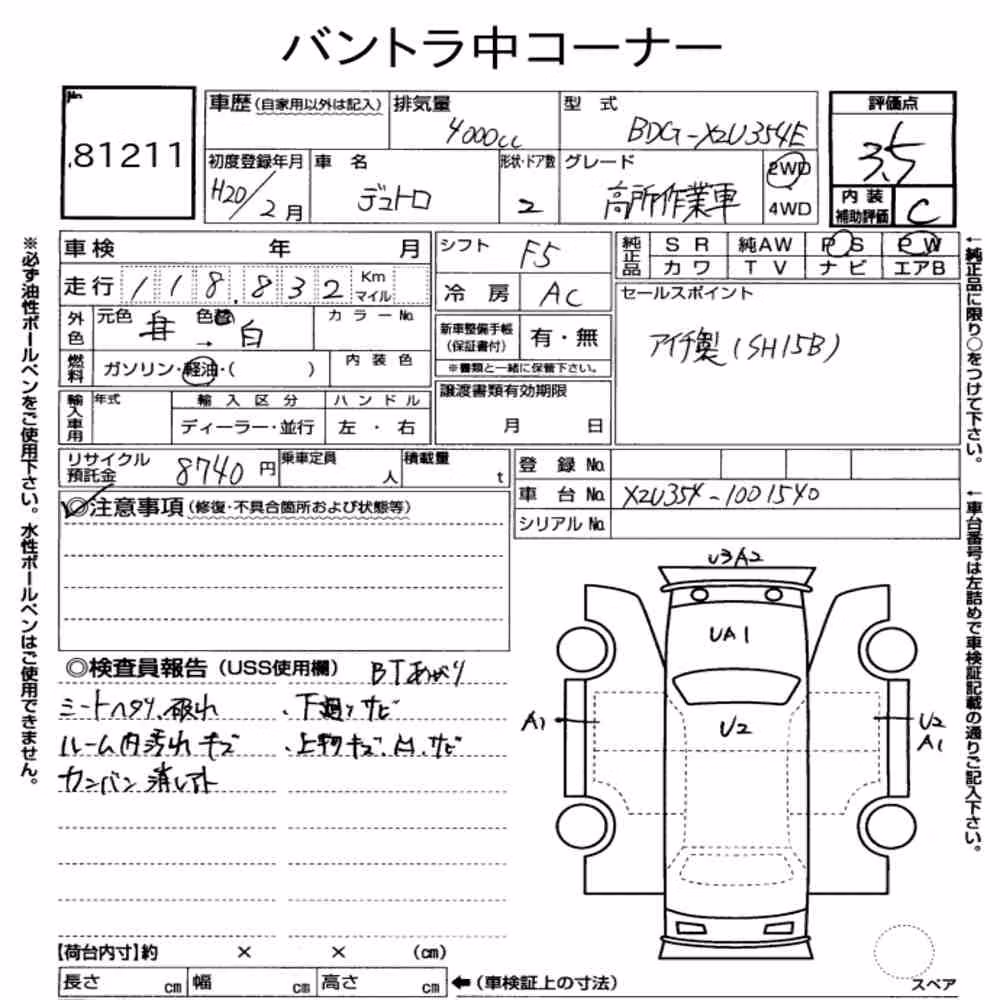 バントラ中コーナー
No. 81211
車歴(自家用以外は記入) 排気量 4000cc 型式 BDG-XZU354E
評価点 3.5
初度登録年月 H20/2月 車名 デュトロ 形状・ドア数 2 グレード 高所作業車 2WD 4WD
内装補助評価 C
車検 年 月
走行 118,832 Km マイル
外色 元色 色替 → 白 カラーNo.
燃料 ガソリン・軽油・( ) 内装色
輸入車用 年式 輸入区分 ハンドル
ディーラー・並行 左・右
シフト F5
冷房 AC
新車整備手帳(保証書付) 有・無
※書類と一緒に保管下さい。
譲渡書類有効期限
月 日
純正品 SR 純AW PS PW
カワ TV ナビ エアB
セールスポイント
アイチ製(SH15B)
リサイクル預託金 8740円 乗車定員 人 積載量 t
登録No.
車台No. XZU354-1001540
シリアルNo.
◎注意事項(修復・不具合箇所および状態等)
◎検査員報告(USS使用欄) BTあがり
シートヘタリ、破れ ・下廻りサビ
ルーム内汚れキズ ・上物キズ、凹、サビ
カンバン消しアト
U3A2
UA1
U2
A1
U2
A1
スペア
【荷台内寸】約 × × (cm)
長さ cm 幅 cm 高さ cm ←(車検証上の寸法)
※必ず油性ボールペンをご使用下さい。水性ボールペンはご使用できません。
←純正品に限り○をつけて下さい。
←車台番号は左詰めで車検証記載の通りご記入下さい。